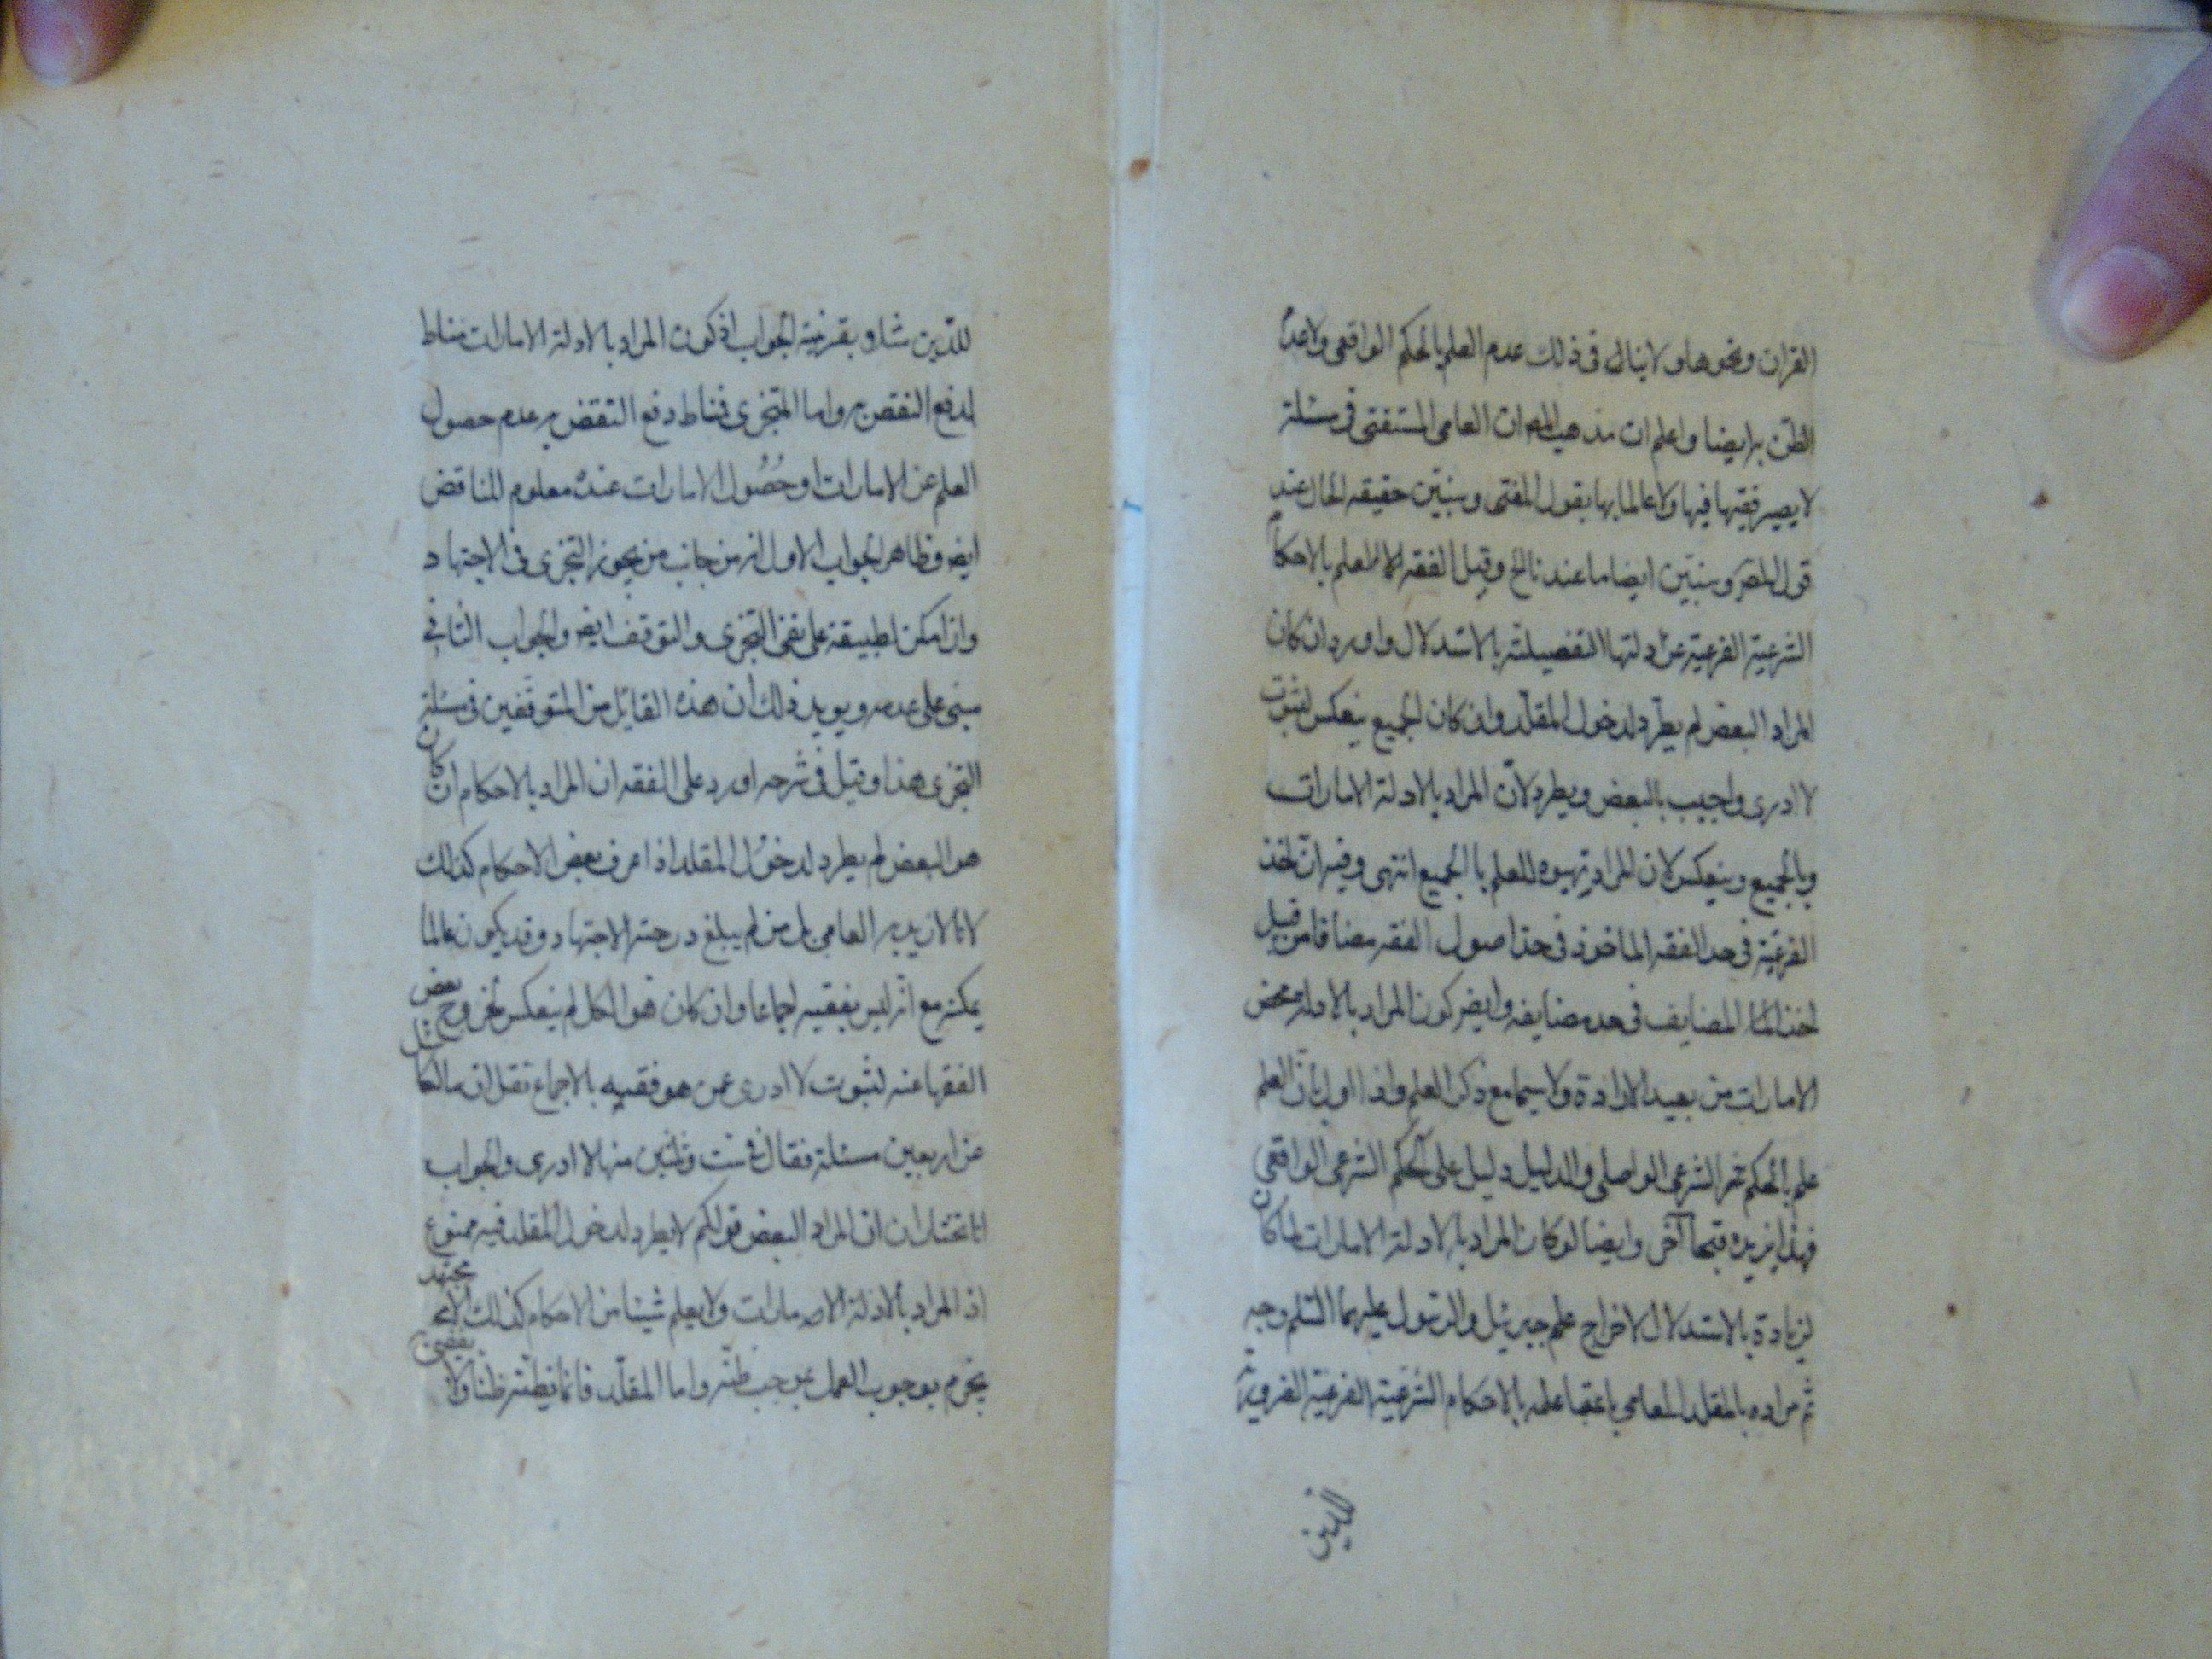 القران ونحوها ولا ينافى فى ذلك عدم العلم بالحكم الواقعى ولا عدم
الظن به ايضا واعلم ان مذهب المصـ ان العامى المستفتى فى مسئلة
لا يصير فقيها فيها ولا عالما بها بقول المفتى وسنبين حقيقه الحال عند
قول المصـ وسنبين ايضا ما عندنا وقيل الفقه العلم بالاحكام
الشرعية الفرعية عن ادلتها التفصيلية بالاستدلال واورد ان كان
المراد البعض لم يطرد لدخول المقلد وان كان الجميع ينعكس لثبوت
لا ادرى واجيب بالبعض ويطرد لان المراد بالادلة الامارات
وبالجميع وينعكس لان المراد تهيوه للعلم بالجميع انتهى وفيه ان اخذ
الفرعية فى حد الفقه الماخوذ فى حد اصول الفقه مضافا من قبيل
اخذ المضايف فى حد مضايفه وايضـ كون المراد بالادلة محض
الامارات من بعيد الارادة ولا سيما مع ذكر العلم واذا اول بان العلم
علم بالحكم الشرعى الواصلى والدليل دليل على الحكم الشرعى الواقعى
فهذا يزيده قبحا آخر وايضا لو كان المراد بالادلة الامارات لما كان
لزيادة بالاستدلال لاخراج علم جبرئيل والرسول عليهما السلم وجه
ثم مراده بالمقلد العامى باعتبار علمه بالاحكام الشرعية الفرعية الضرورية
للدين
للدين شاو بقرينة الجواب اذ كون المراد بالادلة الامارات مناط
لدفع النقض به واما المتجزى فمناط دفع النقض به عدم حصول
العلم عن الامارات او حُصُول الامارات عنده معلوم للناقض
ايضـ وظاهر الجواب الاول انه من جانب من يجوز التجزى فى الاجتهاد
وان امكن تطبيقه على نفى التجزى والتوقف ايضـ والجواب الثانى
مبنى على عدمه ويويد ذلك ان هذه القايل من المتوقفين فى مسئلة
التجزى هذا وقيل فى شرحه اورد على الفقه ان المراد بالاحكام ان كان
هو البعض لم يطرد لدخول المقلد اذا عرف بعض الاحكام كذلك
لانا لا نريد به العامى بل من لم يبلغ درجة الاجتهاد وقد يكون عالما
يمكنه مع انه ليس بفقيه اجماعا وان كان هو الكل لم ينعكس لخروج بعض
الفقها عنه لثبوت لا ادرى عمن هو فقيه بالاجماع نقل ان مالكا سئل
عن اربعين مسئلة فقال فى ست وثلثين منها لا ادرى والجواب
انا نختار ان المراد البعض قولكم لا يطرد لدخول المقلد فيه ممنوع
اذ المراد بالادلة الامارات ولا يعلم شيئا من الاحكام كذلك الا مجتهد
يجزم بوجوب العمل بموجب ظنه واما المقلد فانما يظنه ظنا ولا يفضى